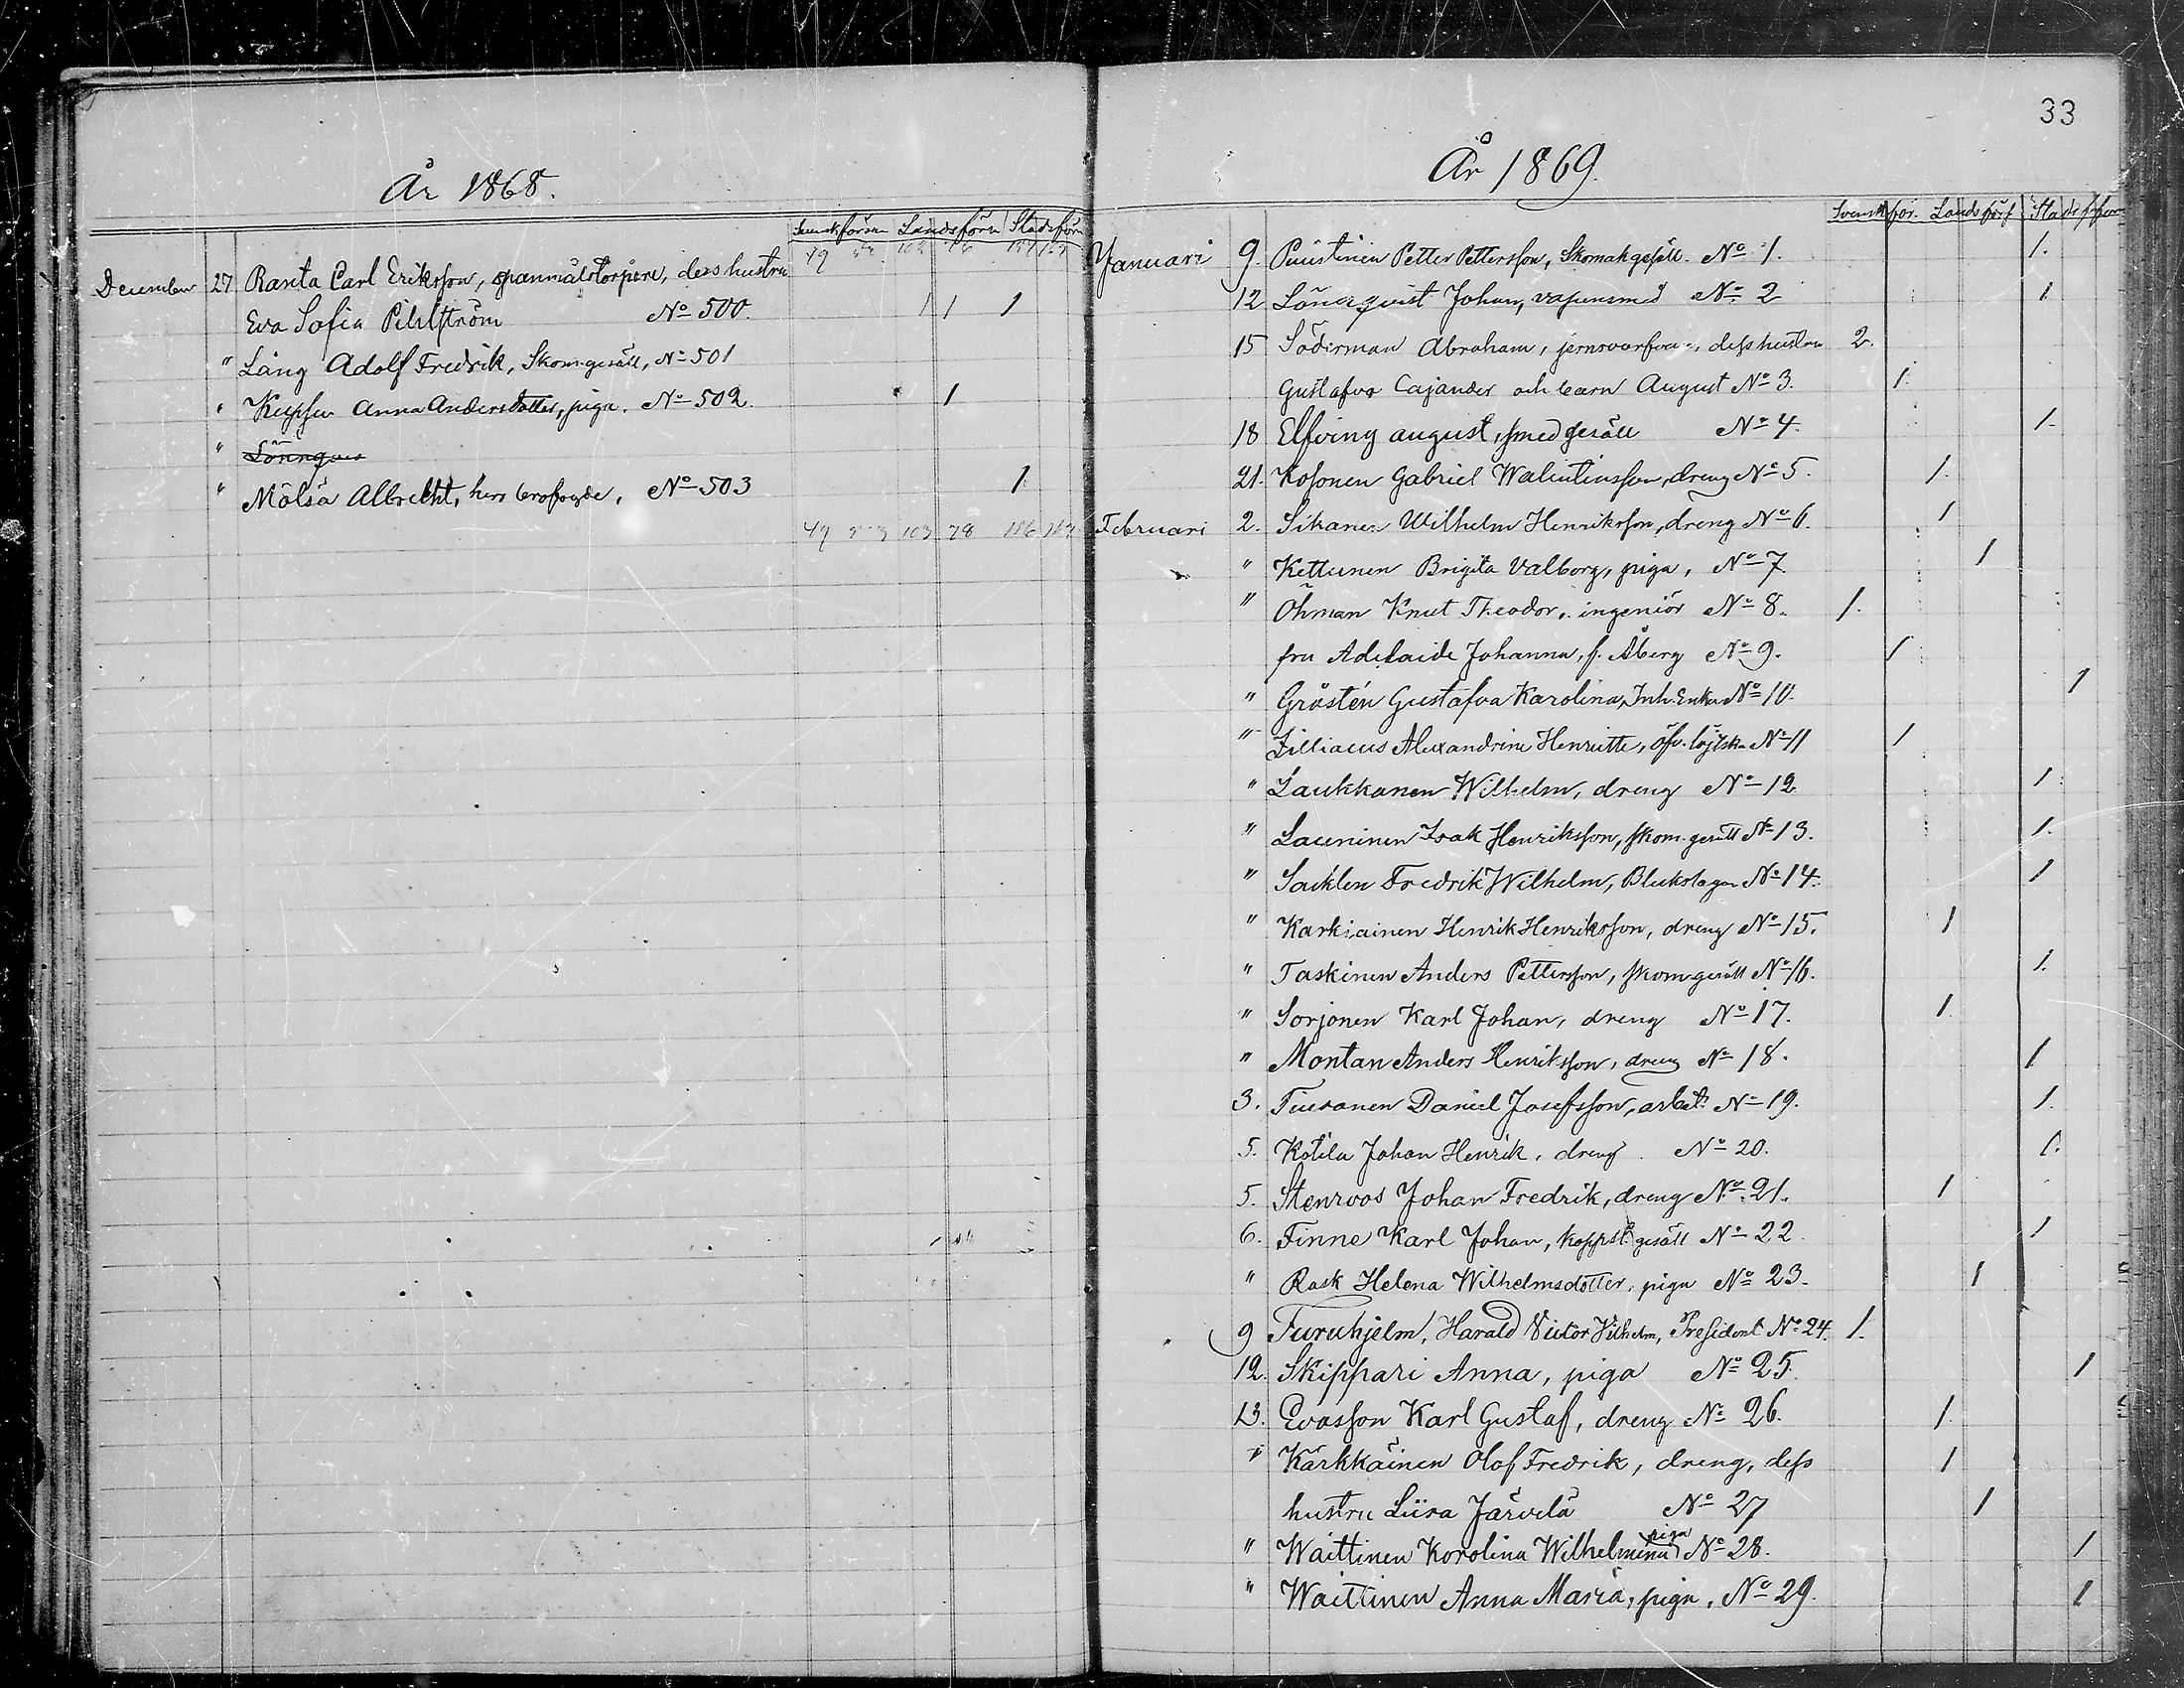 År 1868.
Svenskförsn Landsförs Stadsförs
49 52 102 76 187
December 27 Ranta Carl Eriksson, spanmålstorpare, dess hustru
Eva Sofia Pihlström No 500. 1 1 1
" Lång Adolf Fredrik, Skom.gesäll, No 501
" Anna Andersdotter, piga. No 502. 1
" Lönnqvis
" Mölsä Albrecht, No 503 1
49 53 103 78 186
33
År 1869.
Svensk för. Lands förs Stads förs
Januari 9. Puustinen Petter Pettersson, Skomak.gesäll. No 1. 1.
12 Lönnqvist Johan, vapensmed No 2 1
15 Söderman Abraham, dess hustru 2.
Gustafva Cajander och barn August No 3. 1.
18 Elfving august, smedgesäll No 4. 1.
21. Kosonen Gabriel Walintinsson, dreng No 5. 1.
Februari 2. Sikanen Wilhelm Henriksson, dreng No 6. 1
" Kettunen Brigita Valborg, piga, No 7. 1
" Öhman Knut Theodor, ingeniör No 8. 1.
fru Adelaide Johanna, f. Åberg No 9. 1
" Gråstén Gustafva Karolina, Inh. Enka No 10. 1
" Zilliacus Alexandrine Henriette, öfv. löjtska No 11 1
" Laukkanen Wilhelm, dreng No 12 1
" Launinen Isak Henriksson, skom.gesäll No 13. 1.
" Sacklen Fredrik Wilhelm, Bleckslagare No 14. 1
" Karkiainen Henrik Henriksson, dreng No 15. 1
" Taskinen Anders Pettersson, skom.gesäll No 16. 1.
" Sorjonen Karl Johan, dreng No 17. 1.
" Montan Anders Henriksson, dreng No 18. 1
3. Tuusanen Daniel Josefsson, arbet. No 19. 1.
5. Kotila Johan Henrik, dreng. No 20. 1.
5. Stenroos Johan Fredrik, dreng No 21. 1
6. Finne Karl Johan, kopparsl. gesäll No 22 1
" Rask Helena Wilhelmsdotter, piga No 23. 1
9 Furuhjelm, Harald Victor Vilhelm, President No 24. 1.
12. Skippari Anna, piga No 25. 1
13. Evasson Karl Gustaf, dreng No 26. 1.
" Kärkkäinen Olof Fredrik, dreng, dess 1
hustru Liisa Järvelä No 27 1
" Waittinen Korolina Wilhelmina piga No 28. 1
" Waittinen Anna Maria, piga, No 29. 1